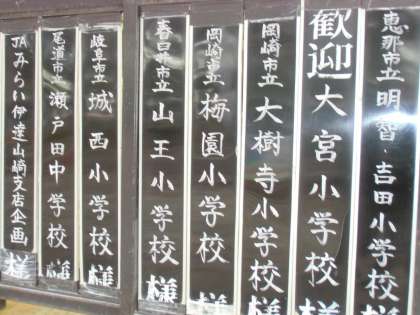 恵那市立明智・吉田小学校様
歓迎大宮小学校様
岡崎市立大樹寺小学校様
岡崎市立梅園小学校様
春日井市立山王小学校様
岐阜市立城西小学校様
尾道市立瀬戸田中学校様
JAみらい伊達山崎支店企画様